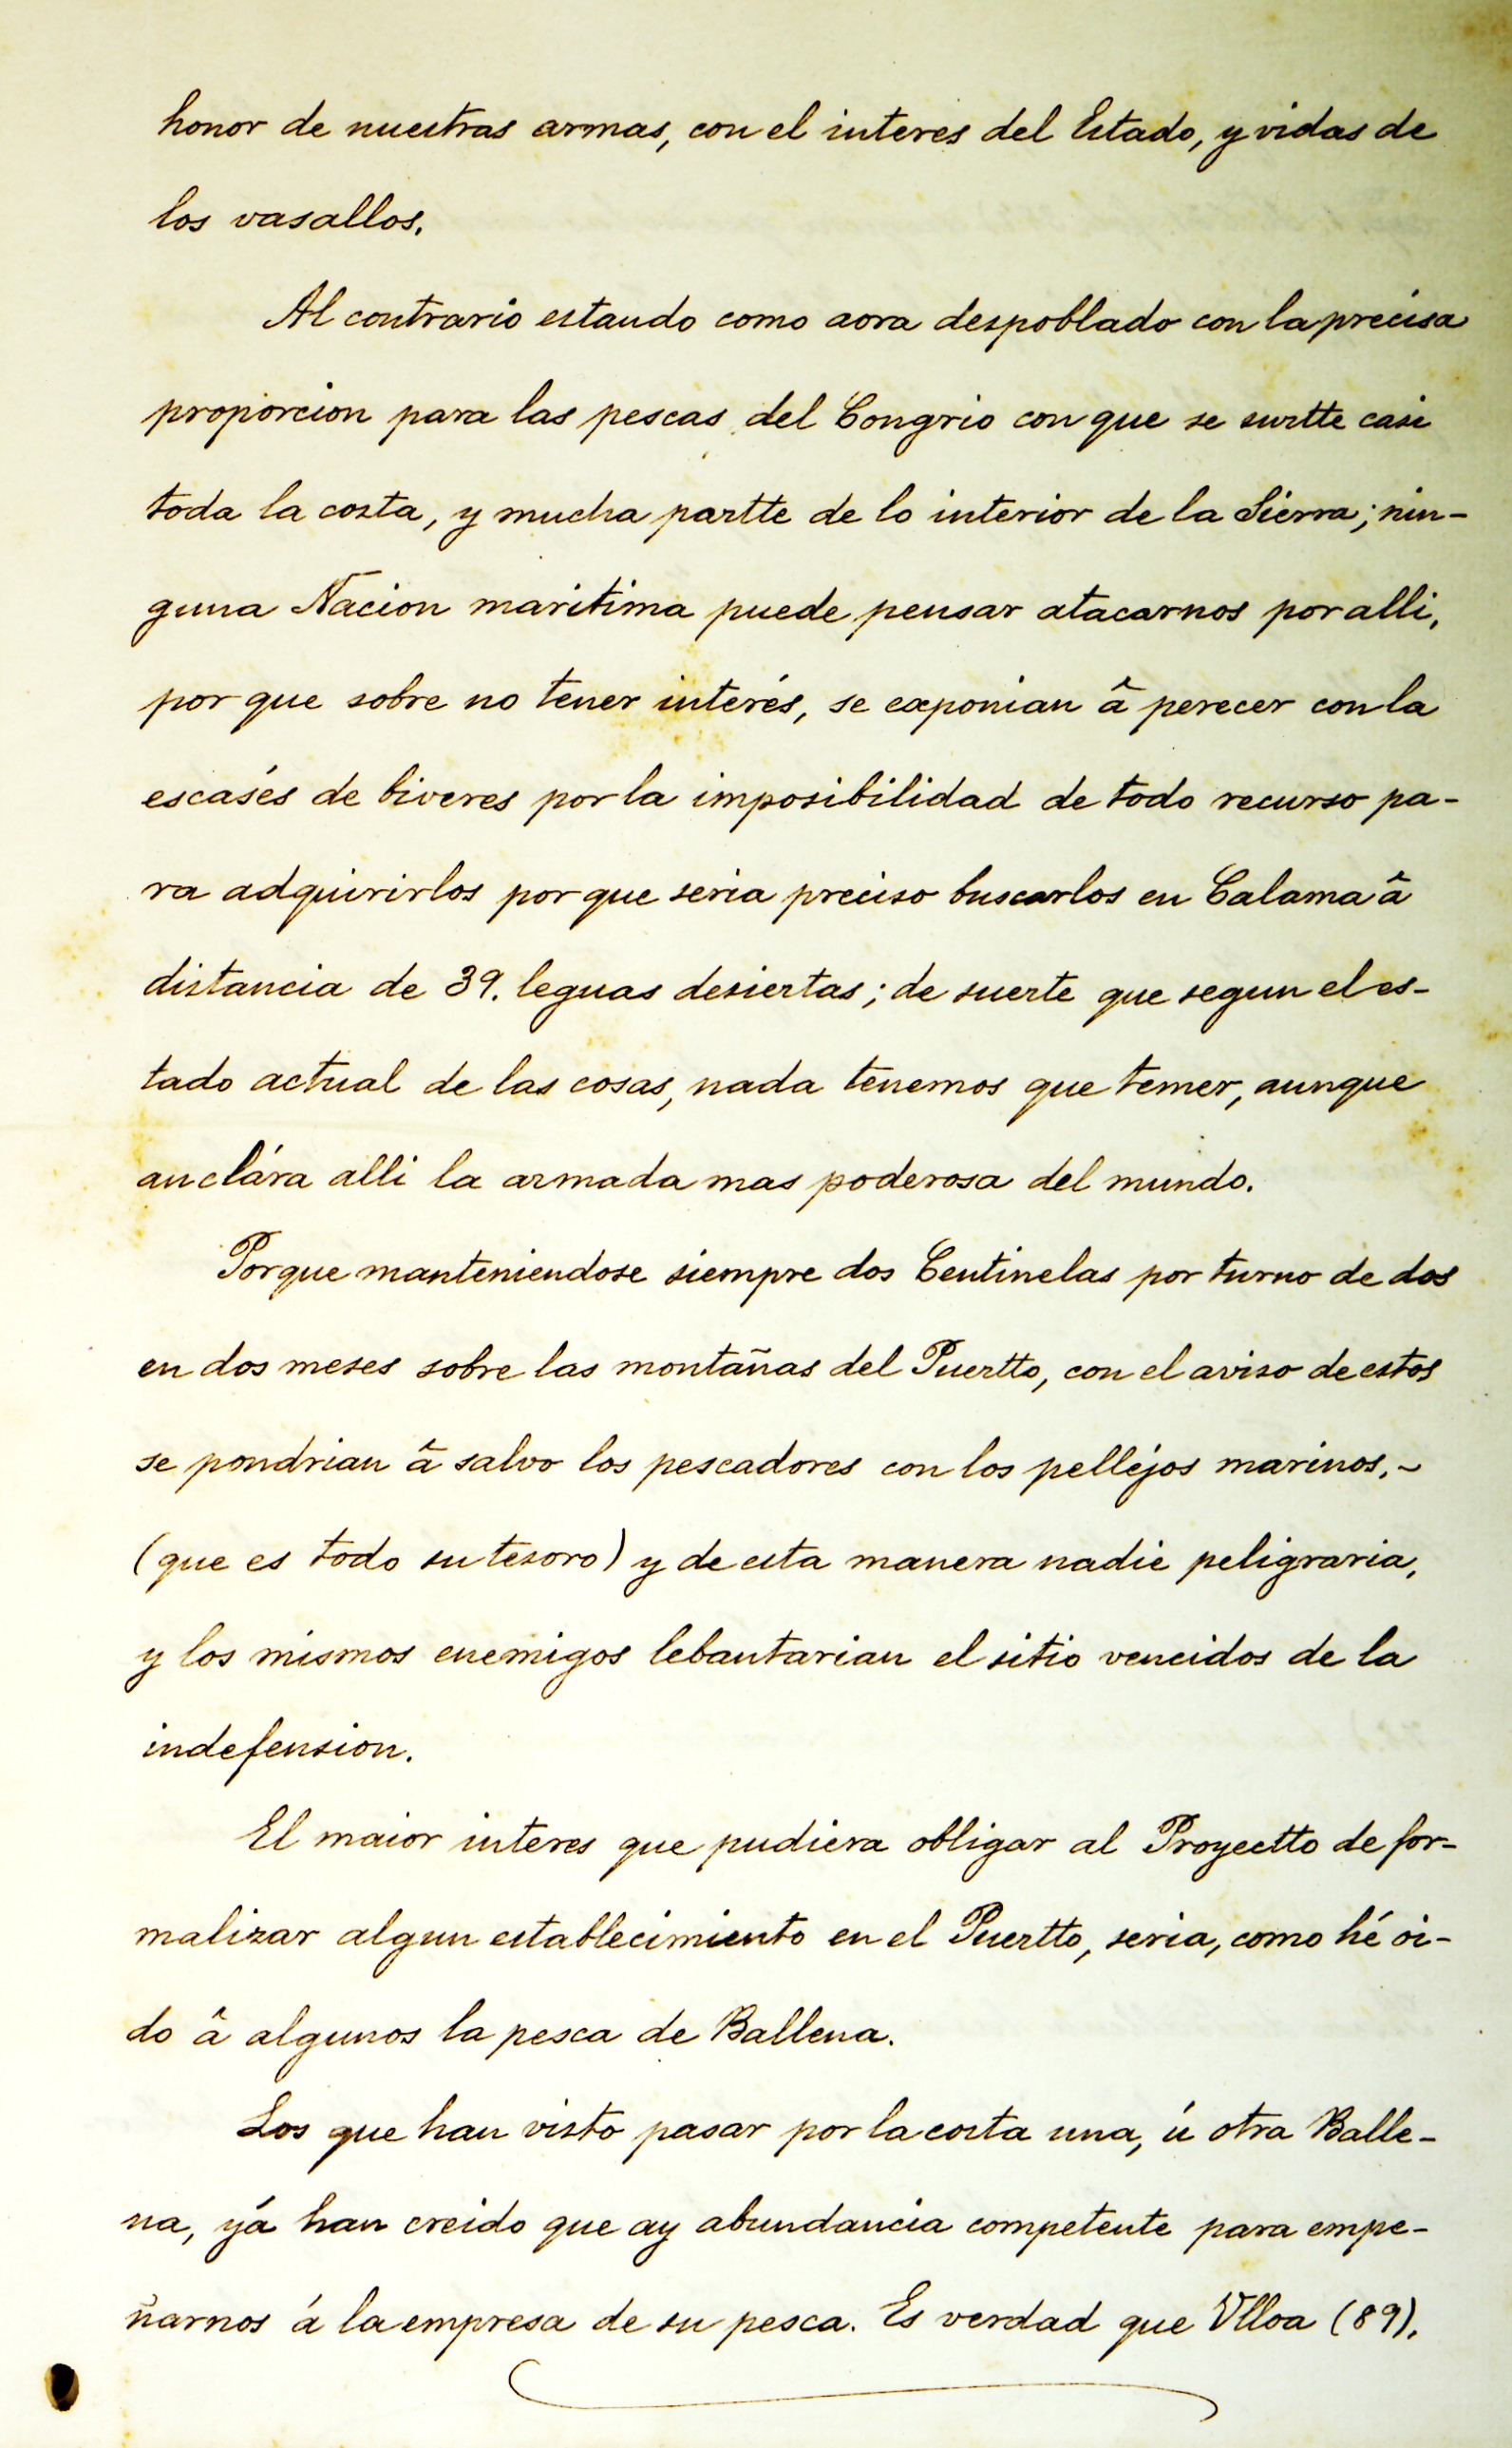 honor de nuestras armas, con el interes del Estado, y vidas de
los vasallos.
Al contrario estando como aora despoblado con la precisa
proporcion para las pescas del Congrio con que se surtte casi
toda la costa, y mucha partte de lo interior de la Sierra; nin-
guna Nacion maritima puede pensar atacarnos por alli,
por que sobre no tener interés, se exponian â perecer con la
escasés de biveres por la imposibilidad de todo recurso pa-
ra adquirirlos por que seria preciso buscarlos en Calama â
distancia de 39. leguas desiertas; de suerte que segun el es-
tado actual de las cosas, nada tenemos que temer, aunque
anclára alli la armada mas poderosa del mundo.
Porque manteniendose siempre dos Centinelas por turno de dos
en dos meses sobre las montañas del Puertto, con el aviso de estos
se pondrian â salvo los pescadores con los pellejos marinos, ~
(que es todo su tesoro) y de esta manera nadie peligraria,
y los mismos enemigos lebantarian el sitio vencidos de la
indefension.
El maior interes que pudiera obligar al Proyectto de for-
malizar algun establecimiento en el Puertto, seria, como hé oi-
do â algunos la pesca de Ballena.
Los que han visto pasar por la costa una, ú otra Balle-
na, yá han creido que ay abundancia competente para empe-
ñarnos á la empresa de su pesca. Es verdad que Vlloa (89).